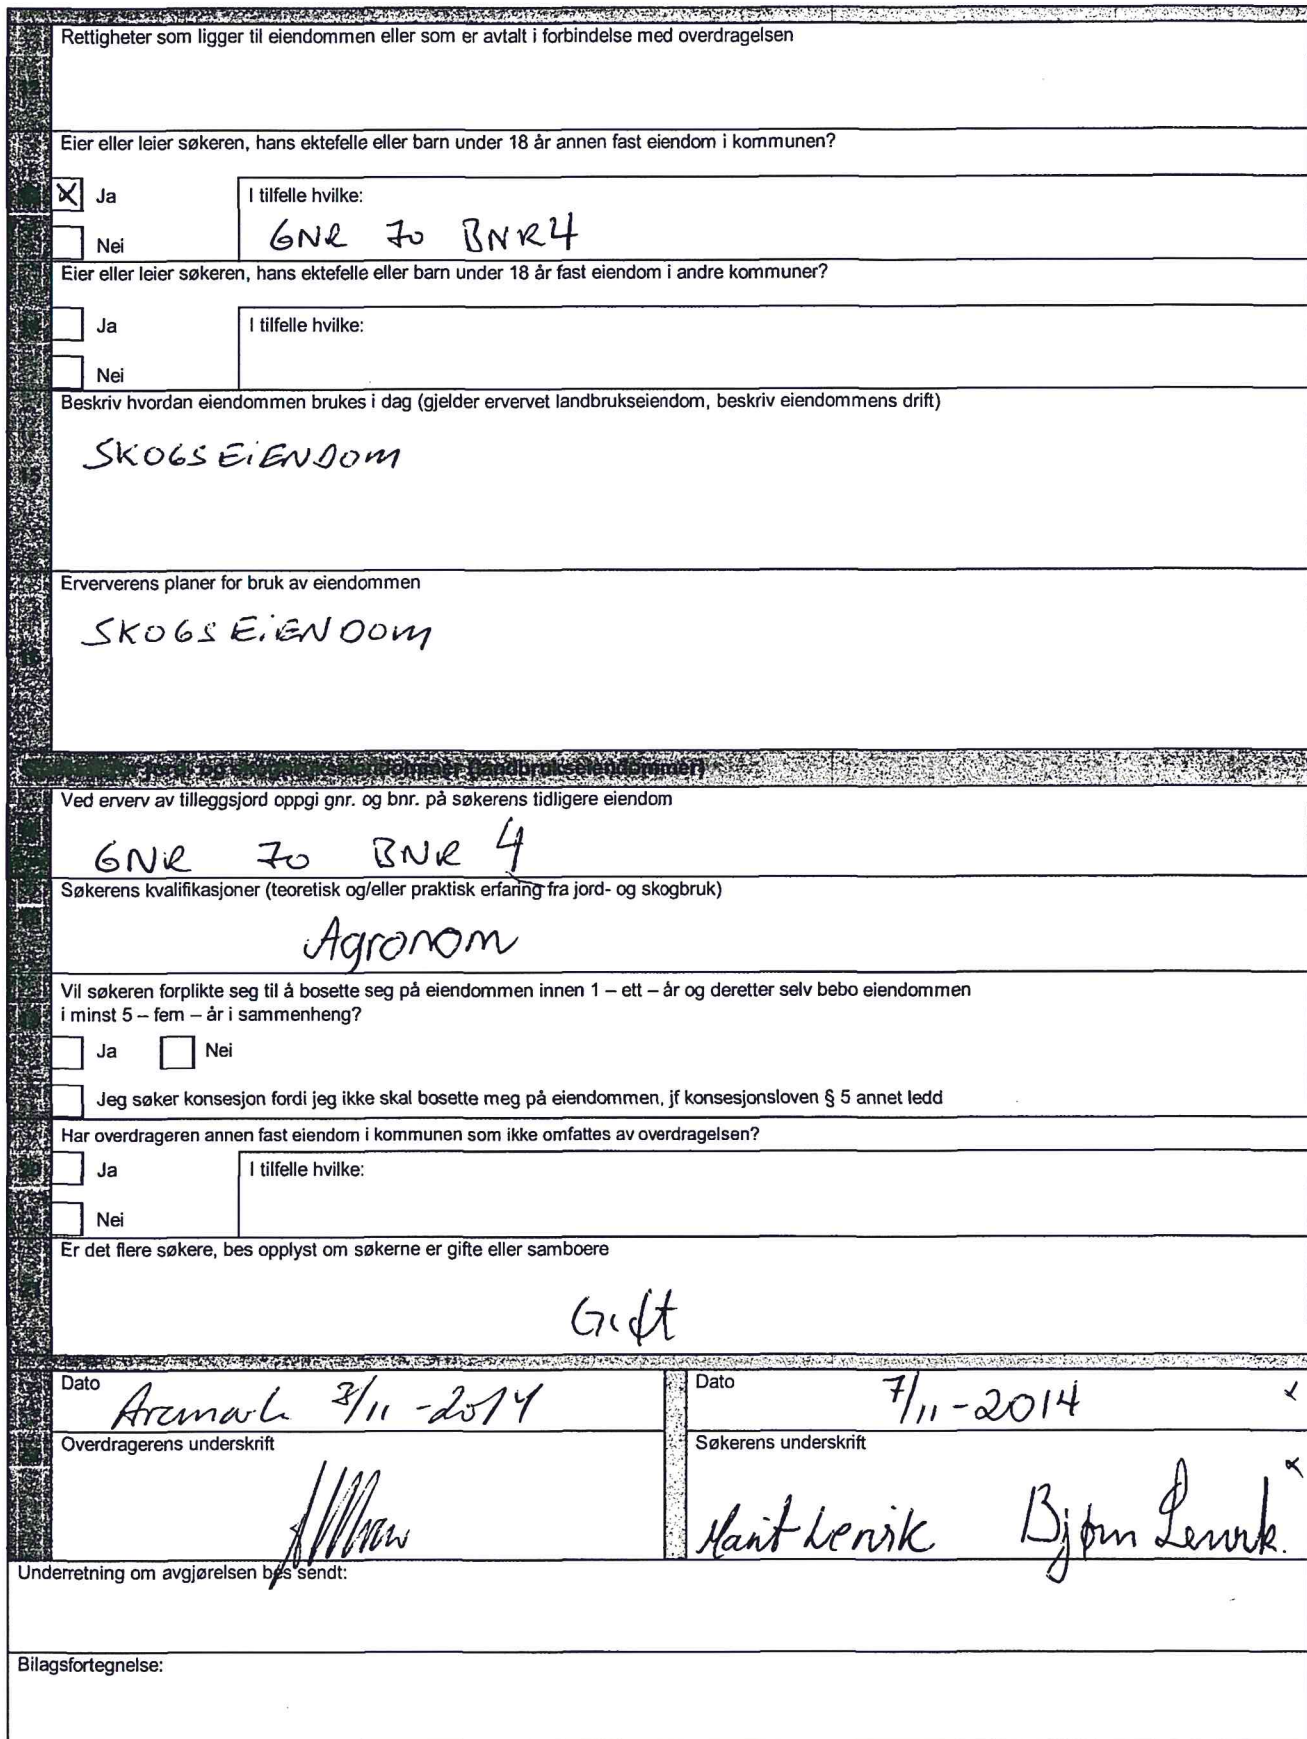 Rettigheter som ligger til eiendommen eller som er avtalt i forbindelse med overdragelsen
Eier eller leier søkeren, hans ektefelle eller barn under 18 år annen fast eiendom i kommunen?
X Ja
I tilfelle hvilke:
GNR 70 BNR 4
Nei
Eier eller leier søkeren, hans ektefelle eller barn under 18 år fast eiendom i andre kommuner?
Ja
I tilfelle hvilke:
Nei
Beskriv hvordan eiendommen brukes i dag (gjelder ervervet landbrukseiendom, beskriv eiendommens drift)
SKOGSEiENDOM
Erververens planer for bruk av eiendommen
SKOGSEiENDOM
jord- og skogbrukseiendommer (landbrukseiendommer)
Ved erverv av tilleggsjord oppgi gnr. og bnr. på søkerens tidligere eiendom
GNR 70 BNR 4
Søkerens kvalifikasjoner (teoretisk og/eller praktisk erfaring fra jord- og skogbruk)
Agronom
Vil søkeren forplikte seg til å bosette seg på eiendommen innen 1 – ett – år og deretter selv bebo eiendommen
i minst 5 – fem – år i sammenheng?
Ja Nei
Jeg søker konsesjon fordi jeg ikke skal bosette meg på eiendommen, jf konsesjonsloven § 5 annet ledd
Har overdrageren annen fast eiendom i kommunen som ikke omfattes av overdragelsen?
Ja
I tilfelle hvilke:
Nei
Er det flere søkere, bes opplyst om søkerne er gifte eller samboere
Gift
Dato
Aremark /11 -2014
Dato
7/11-2014 x
Overdragerens underskrift
Søkerens underskrift
x
Marit Lervik Bjørn Lervik.
Underretning om avgjørelsen bes sendt:
Bilagsfortegnelse: